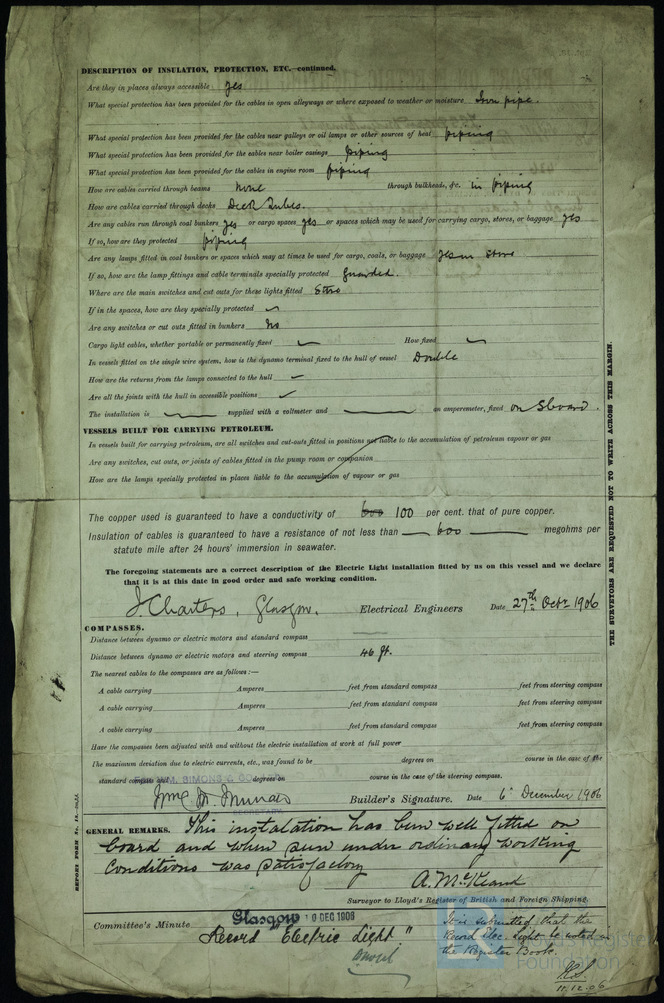 DESCRIPTION OF INSULATION, PROTECTION, ETC.—continued.
Are they in places always accessible yes
What special protection has been provided for the cables in open alleyways or where exposed to weather or moisture Iron pipe.
What special protection has been provided for the cables near galleys or oil lamps or other sources of heat piping
What special protection has been provided for the cables near boiler casings piping
What special protection has been provided for the cables in engine room piping
How are cables carried through beams None through bulkheads, &c. in piping
How are cables carried through decks Deck Tubes.
Are any cables run through coal bunkers yes or cargo spaces yes or spaces which may be used for carrying cargo, stores, or baggage yes
If so, how are they protected piping
Are any lamps fitted in coal bunkers or spaces which may at times be used for cargo, coals, or baggage yes in Store
If so, how are the lamp fittings and cable terminals specially protected Guarded.
Where are the main switches and cut outs for these lights fitted
If in the spaces, how are they specially protected ✓
Are any switches or cut outs fitted in bunkers No
Cargo light cables, whether portable or permanently fixed ✓ How fixed ✓
In vessels fitted on the single wire system, how is the dynamo terminal fixed to the hull of vessel Double
How are the returns from the lamps connected to the hull ✓
Are all the joints with the hull in accessible positions ✓
The installation is supplied with a voltmeter and an amperemeter, fixed on Sboard.
VESSELS BUILT FOR CARRYING PETROLEUM.
In vessels built for carrying petroleum, are all switches and cut-outs fitted in positions not liable to the accumulation of petroleum vapour or gas
Are any switches, cut outs, or joints of cables fitted in the pump room or companion
How are the lamps specially protected in places liable to the accumulation of vapour or gas
The copper used is guaranteed to have a conductivity of 600 100 per cent. that of pure copper.
Insulation of cables is guaranteed to have a resistance of not less than 600 megohms per
statute mile after 24 hours' immersion in seawater.
The foregoing statements are a correct description of the Electric Light installation fitted by us on this vessel and we declare
that it is at this date in good order and safe working condition.
J. Charters, Glasgow. Electrical Engineers Date 27th Octr 1906
COMPASSES.
Distance between dynamo or electric motors and standard compass
Distance between dynamo or electric motors and steering compass 46 ft.
The nearest cables to the compasses are as follows:—
A cable carrying Amperes feet from standard compass feet from steering compass
A cable carrying Amperes feet from standard compass feet from steering compass
A cable carrying Amperes feet from standard compass feet from steering compass
Have the compasses been adjusted with and without the electric installation at work at full power
The maximum deviation due to electric currents, etc., was found to be degrees on course in the case of the
standard compass and degrees on course in the case of the steering compass.
WM. SIMONS & CO
Builder's Signature. Date 6 December 1906
GENERAL REMARKS. This instalation has been well fitted on
board and when run under ordinary working
Conditions was satisfactory
A. McKeand
Surveyor to Lloyd's Register of British and Foreign Shipping.
Committee's Minute Glasgow 10 DEC 1906
Record "Electric Light"
It is submitted that the
Record Elec. Light be noted in
the Register Book.
11.12.06
THE SURVEYORS ARE REQUESTED NOT TO WRITE ACROSS THIS MARGIN.
REPORT FORM No. 13.
Lloyd's Register
Foundation